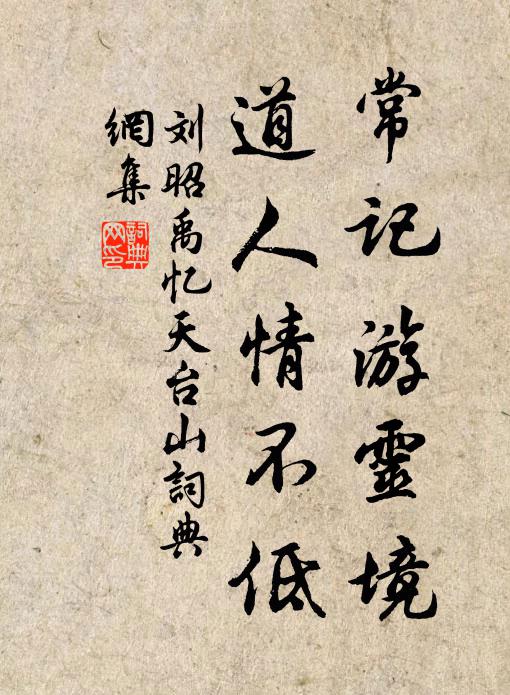 常记游靈境
道人情不低
刘昭禹忆天台山詞典
網集
詞典
网印